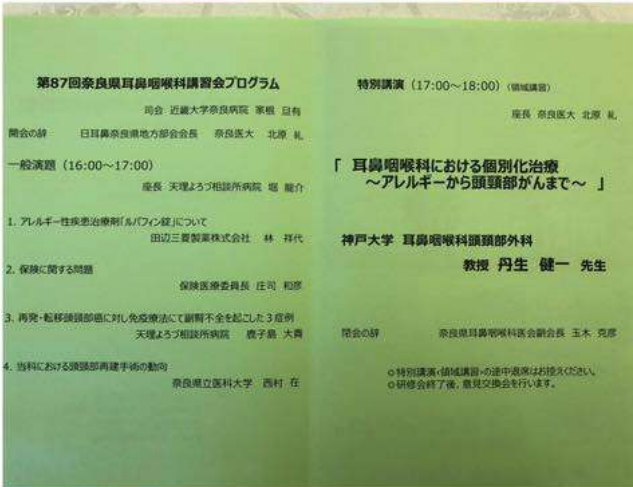 第87回奈良県耳鼻咽喉科講習会プログラム
司会 近畿大学奈良病院 家根 旦有
開会の辞 日耳鼻奈良県地方部会会長 奈良医大 北原 糺
一般演題（16:00～17:00）
座長 天理よろづ相談所病院 堀 龍介
1. アレルギー性疾患治療剤「ルパフィン錠」について
田辺三菱製薬株式会社 林 祥代
2. 保険に関する問題
保険医療委員長 庄司 和彦
3. 再発・転移頭頸部癌に対し免疫療法にて副腎不全を起こした３症例
天理よろづ相談所病院 鹿子島 大貴
4. 当科における頭頸部再建手術の動向
奈良県立医科大学 西村 在
特別講演（17:00～18:00）（領域講習）
座長 奈良医大 北原 糺
「 耳鼻咽喉科における個別化治療
～アレルギーから頭頸部がんまで～ 」
神戸大学 耳鼻咽喉科頭頸部外科
教授 丹生 健一 先生
閉会の辞 奈良県耳鼻咽喉科医会副会長 玉木 克彦
○特別講演<領域講習>の途中退席はお控えください。
○研修会終了後、意見交換会を行います。